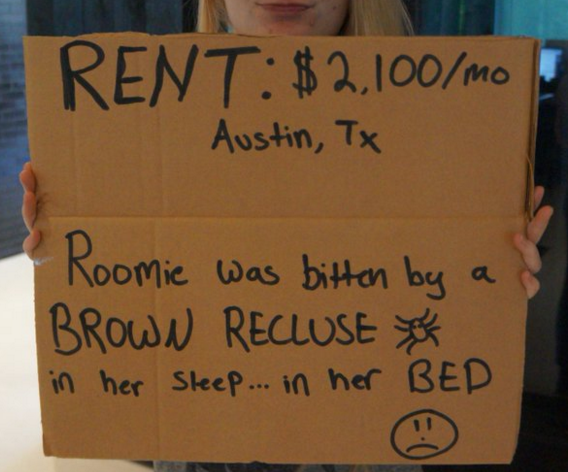 RENT: $2,100/mo
Austin, Tx
Roomie was bitten by a
BROWN RECLUSE
in her sleep... in her BED